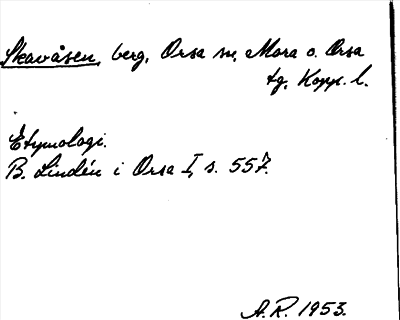 Skavåsen, berg, Orsa sn, Mora o. Orsa
tg, Kopp. l.
Etymologi.
B. Lindén i Orsa I, s. 557.
A.R. 1953.